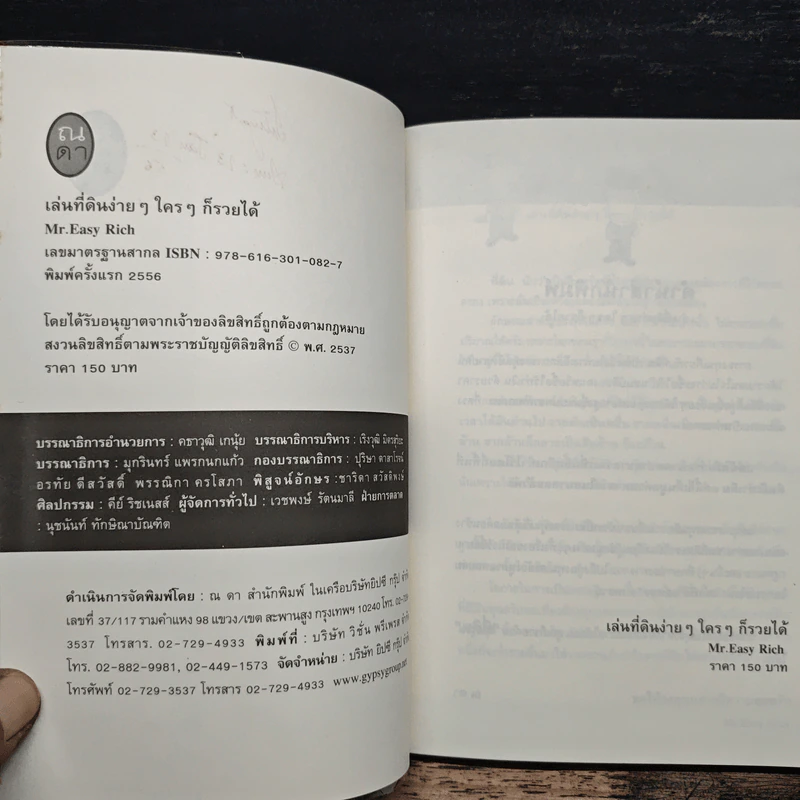 ณ
ดา
เล่นที่ดินง่าย ๆ ใคร ๆ ก็รวยได้
Mr.Easy Rich
เลขมาตรฐานสากล ISBN : 978-616-301-082-7
พิมพ์ครั้งแรก 2556
โดยได้รับอนุญาตจากเจ้าของลิขสิทธิ์ถูกต้องตามกฎหมาย
สงวนลิขสิทธิ์ตามพระราชบัญญัติลิขสิทธิ์ © พ.ศ. 2537
ราคา 150 บาท
บรรณาธิการอำนวยการ : คธาวุฒิ เกนุ้ย บรรณาธิการบริหาร : เริงวุฒิ มิตรสุริยะ
บรรณาธิการ : มุกรินทร์ แพรกนกแก้ว กองบรรณาธิการ : ปุริษา ตาสาโรจน์
อรทัย ดีสวัสดิ์ พรรณิกา ครโสภา พิสูจน์อักษร : ชาริดา สวัสดิพงษ์
ศิลปกรรม : คีย์ ริชเนสส์ ผู้จัดการทั่วไป : เวชพงษ์ รัตนมาลี ฝ่ายการตลาด
: นุชนันท์ ทักษิณาบัณฑิต
ดำเนินการจัดพิมพ์โดย : ณ ดา สำนักพิมพ์ ในเครือบริษัทยิปซี กรุ๊ป จำกัด
เลขที่ 37/117 รามคำแหง 98 แขวง/เขต สะพานสูง กรุงเทพฯ 10240 โทร. 02-729-
3537 โทรสาร. 02-729-4933 พิมพ์ที่ : บริษัท วิชั่น พรีเพรส จำกัด
โทร. 02-882-9981, 02-449-1573 จัดจำหน่าย : บริษัท ยิปซี กรุ๊ป จำกัด
โทรศัพท์ 02-729-3537 โทรสาร 02-729-4933 www.gypsygroup.net
เล่นที่ดินง่าย ๆ ใคร ๆ ก็รวยได้
Mr.Easy Rich
ราคา 150 บาท